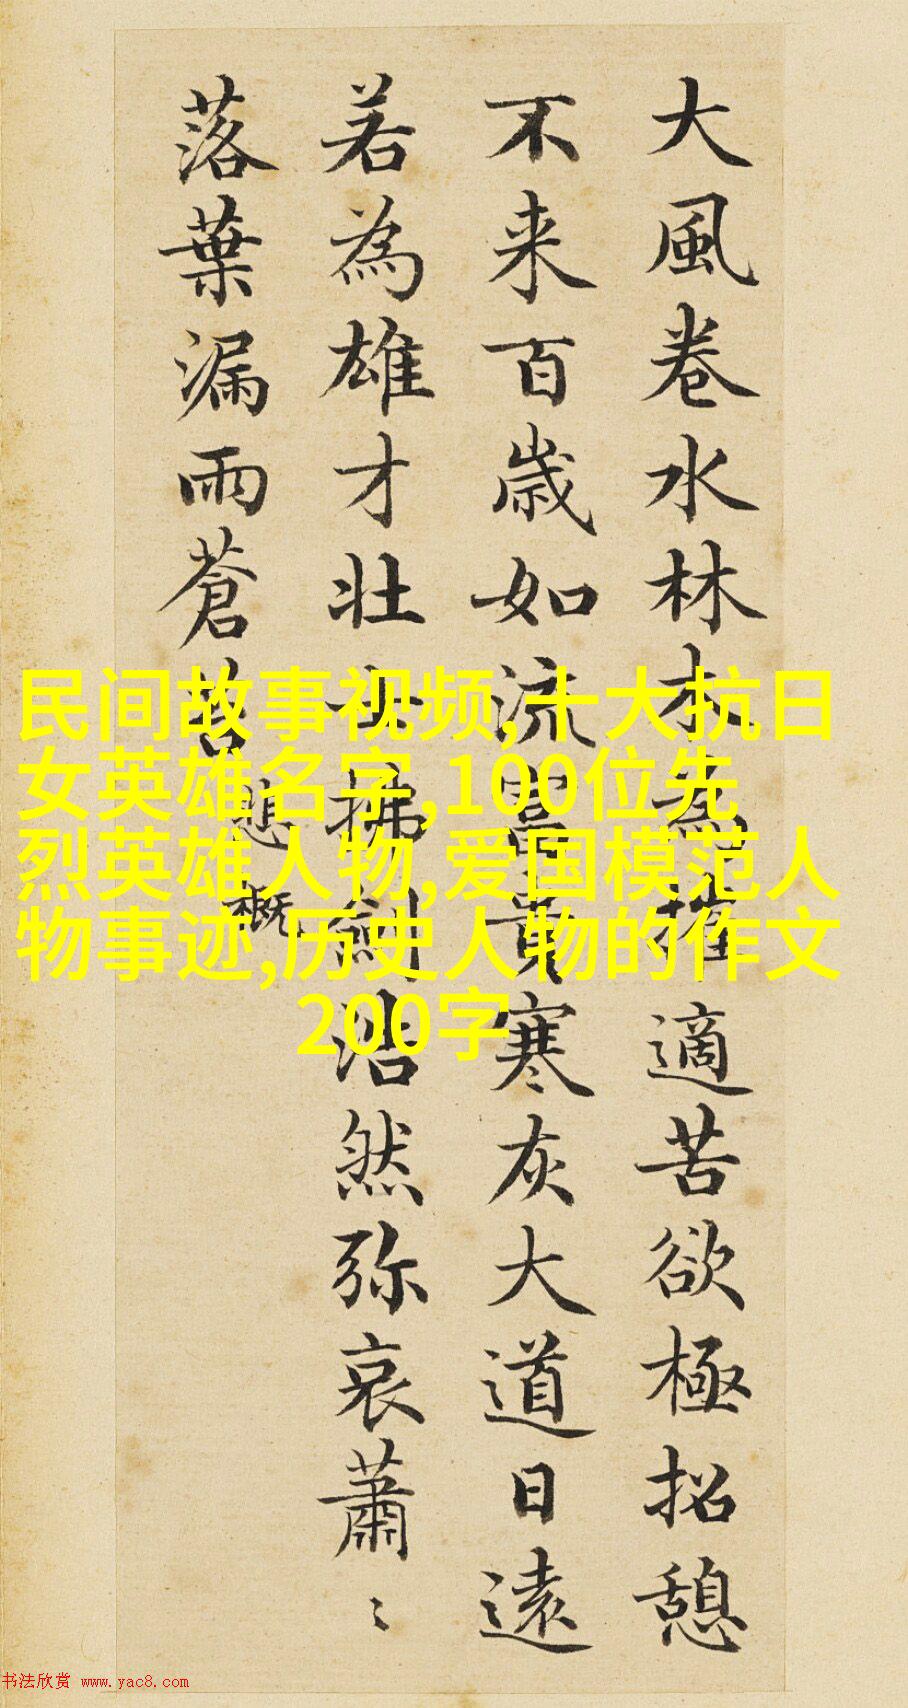 大風卷水林木為摧適苦欲極招憩
不来百歳如流富貴寒灰大道日遠
若為雄才壮士拂劍浩然弥哀蕭〻
落葉漏雨蒼苔
悲概
民间故事视频,十大抗日
女英雄名字,100位先
烈英雄人物,爱国模范人
物事迹,历史人物的作文
200字
书法欣赏 www.yac8.com